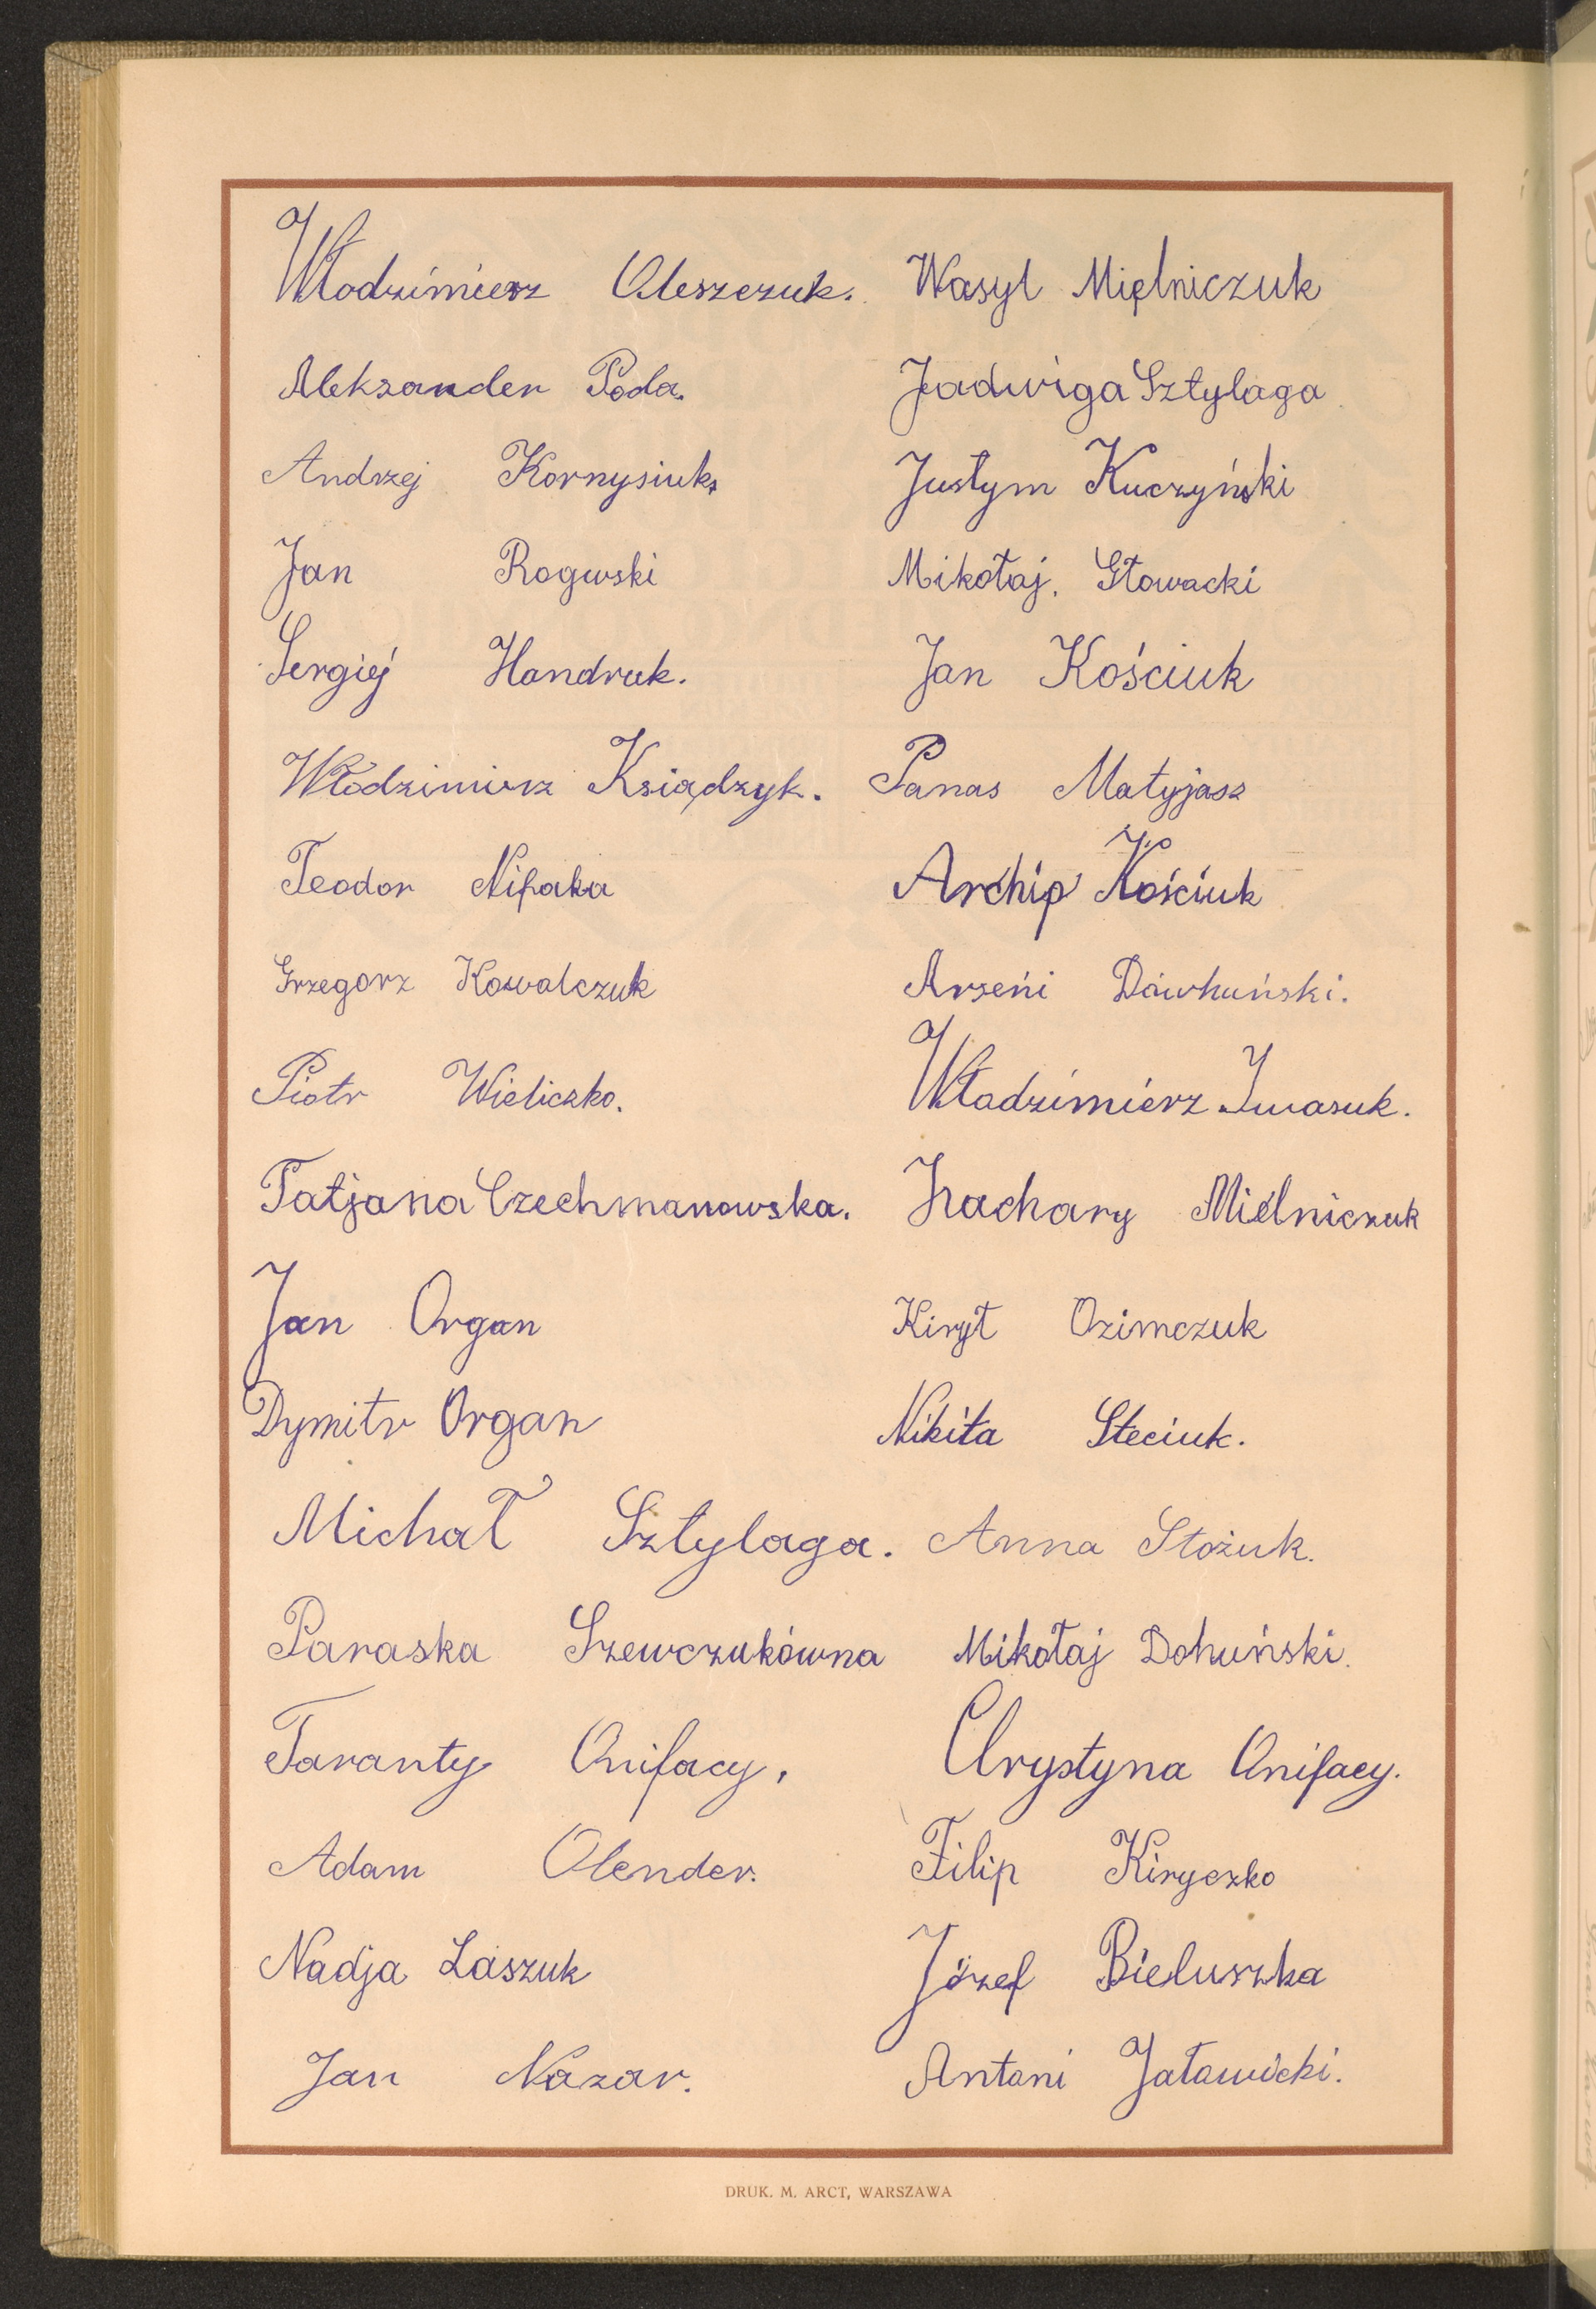 Włodzimierz Oleszczuk. Wasyl Mielniczuk
Aleksander Poda. Jadwiga Sztylaga
Andrzej Kornysiuk. Justym Kuczyński
Jan Rogwski Mikołaj. Głowacki
Sergiej Handruk. Jan Kościuk
Włodzimierz Książdzyk. Panas Matyjasz
Teodor Nifaka Archip Kościuk
Grzegorz Kowalczuk Arseni Dawhuński.
Piotr Wieliczko. Władzimierz Iwasuk.
Tatjana Czechmanowska. Zachary Mielniczuk
Jan Organ Kirył Ozimczuk
Dymitr Organ Nikita Steciuk.
Michał Sztylaga. Anna Stożuk.
Paraska Szewczukówna Mikołaj Dohuński.
Taranty Onifacy, Chrystyna Onifacy.
Adam Olender. Filip Kiryczko
Nadja Laszuk Józef Bieluszka
Jan Nazar. Antoni Jaławicki.
DRUK. M. ARCT, WARSZAWA